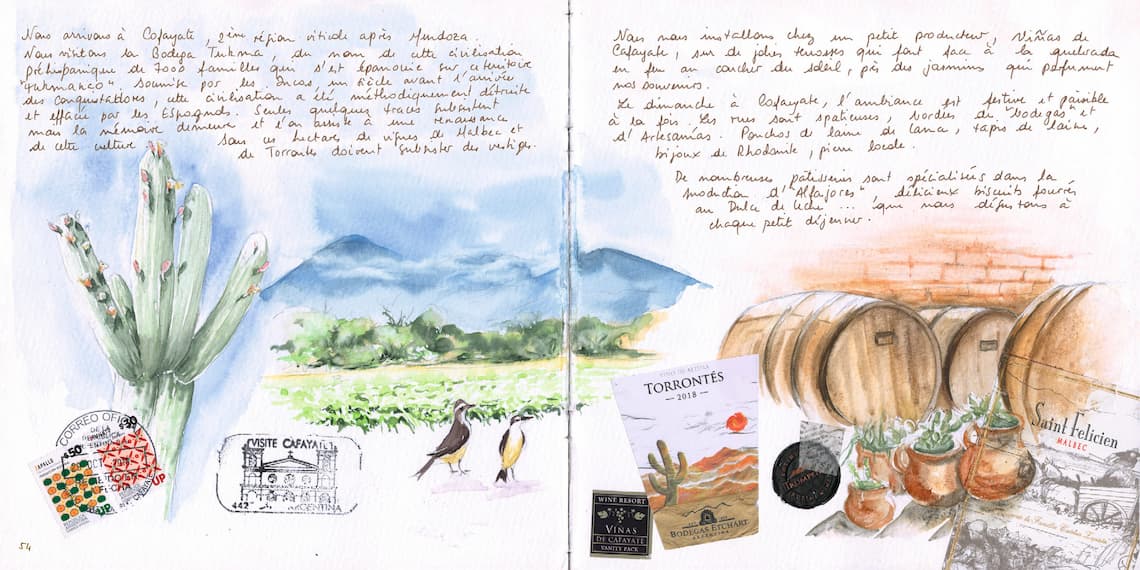 Nous arrivons à Cafayate, 2ème région viticole après Mendoza.
Nous visitons la Bodega Tukma, du nom de cette civilisation
préhispanique de 7000 familles qui s'est épanouie sur ce territoire
"tukmanao". Soumise par les Incas, un siècle avant l'arrivée
des conquistadores, cette civilisation a été méthodiquement détruite
et effacée par les Espagnols. Seules quelques traces subsistent
mais la mémoire demeure et l'on assiste à une renaissance
de cette culture. Sous ces hectares de vignes de Malbec et
de Torrontes doivent subsister des vestiges.
CORREO OFICIAL
DE LA
REPUBLICA
ARGENTINA
VISITE CAFAYATE
442
ARGENTINA
54
Nous nous installons chez un petit producteur, Viñas de
Cafayate, sur de jolies terrasses qui font face à la quebrada
en feu au coucher du soleil, près des jasmins qui parfument
nos souvenirs.
Le dimanche à Cafayate, l'ambiance est festive et paisible
à la fois. Les rues sont spatieuses, bordées de "bodegas" et
d'Artesanías. Ponchos de laine de lama, tapis de laine,
bijoux de Rhodonite, pierre locale.
De nombreuses pâtisseries sont spécialisées dans la
production d'"Alfajores" délicieux biscuits fourrés
au Dulce de leche ... que nous dégustons à
chaque petit déjeuner.
VINO DE ALTURA
TORRONTÉS
2018
BODEGAS ETCHART
ARGENTINA
WINE RESORT
VIÑAS
DE CAFAYATE
VANITY PACK
Saint Felicien
MALBEC